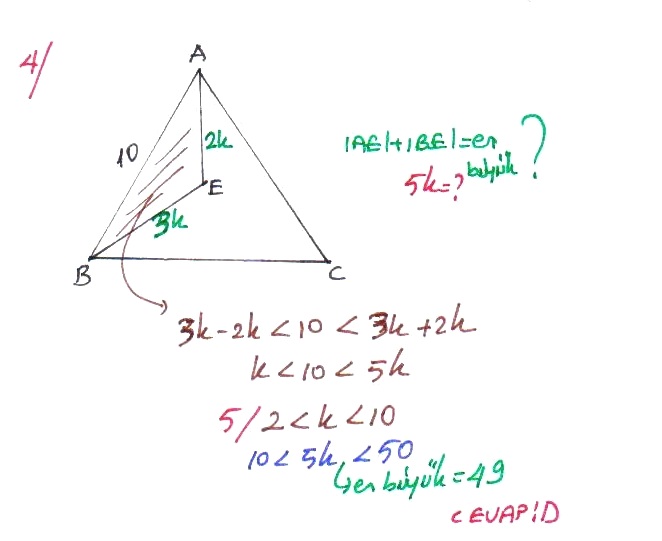 4/
A
10
2k
E
3k
B
C
|AE|+|BE|=en
büyük ?
5k=?
3k-2k<10<3k+2k
k<10<5k
5/2<k<10
10<5k<50
en büyük=49
CEVAP:D